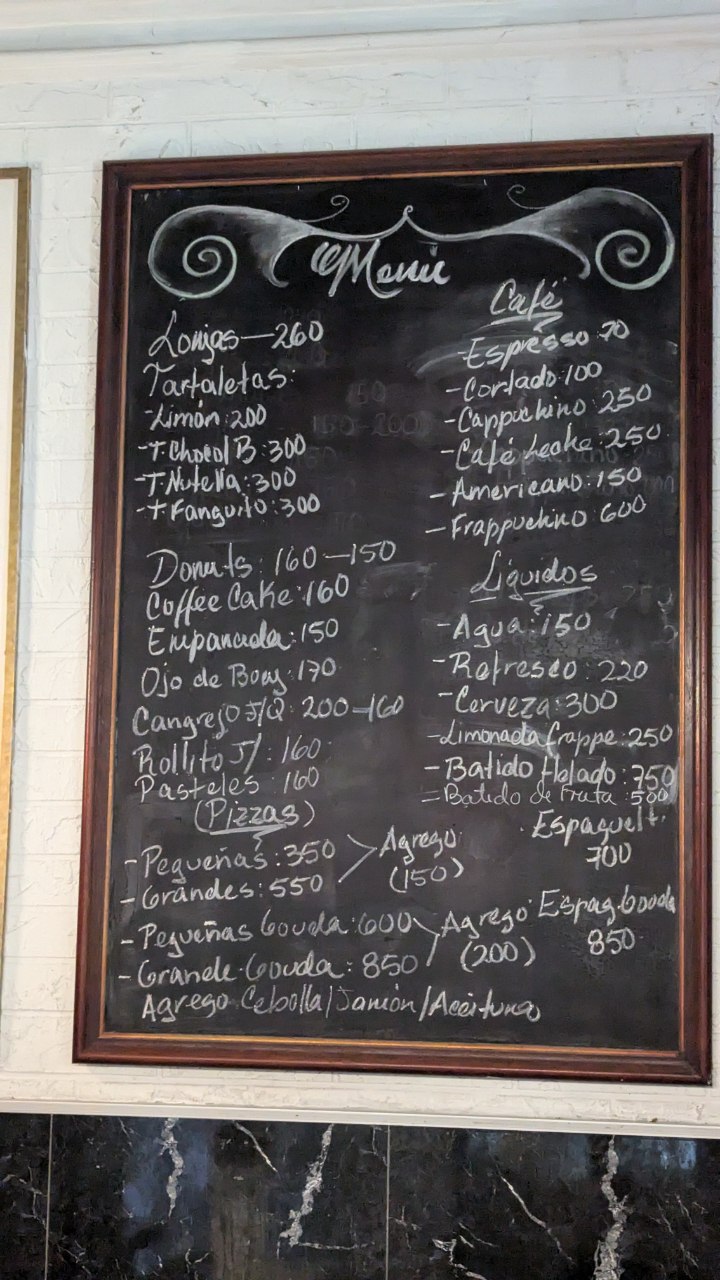 Menú
Lonjas — 260
Tartaletas:
-Limón: 200
-T. Chocol B: 300
-T. Nutella: 300
-T Fanguito: 300
Donuts: 160 — 150
Coffee Cake: 160
Empanada: 150
Ojo de Buey: 170
Cangrejo J/Q: 200 — 160
Rollito J/: 160
Pasteles: 160
(Pizzas)
-Pequeñas: 350
-Grandes: 550
Agrego
(150)
-Pequeñas Gouda: 600
-Grande Gouda: 850
Agrego
(200)
Agrego Cebolla/Jamón/Aceituna
Café
-Espresso 70
-Cortado: 100
-Cappuchino: 250
-Café Leche: 250
-Americano: 150
-Frappuchino 600
Líquidos
-Agua: 150
-Refresco: 220
-Cerveza: 300
-Limonada Frappe: 250
-Batido Helado: 750
-Batido de Fruta: 500
Espaguett:
700
Espag. Gouda
850